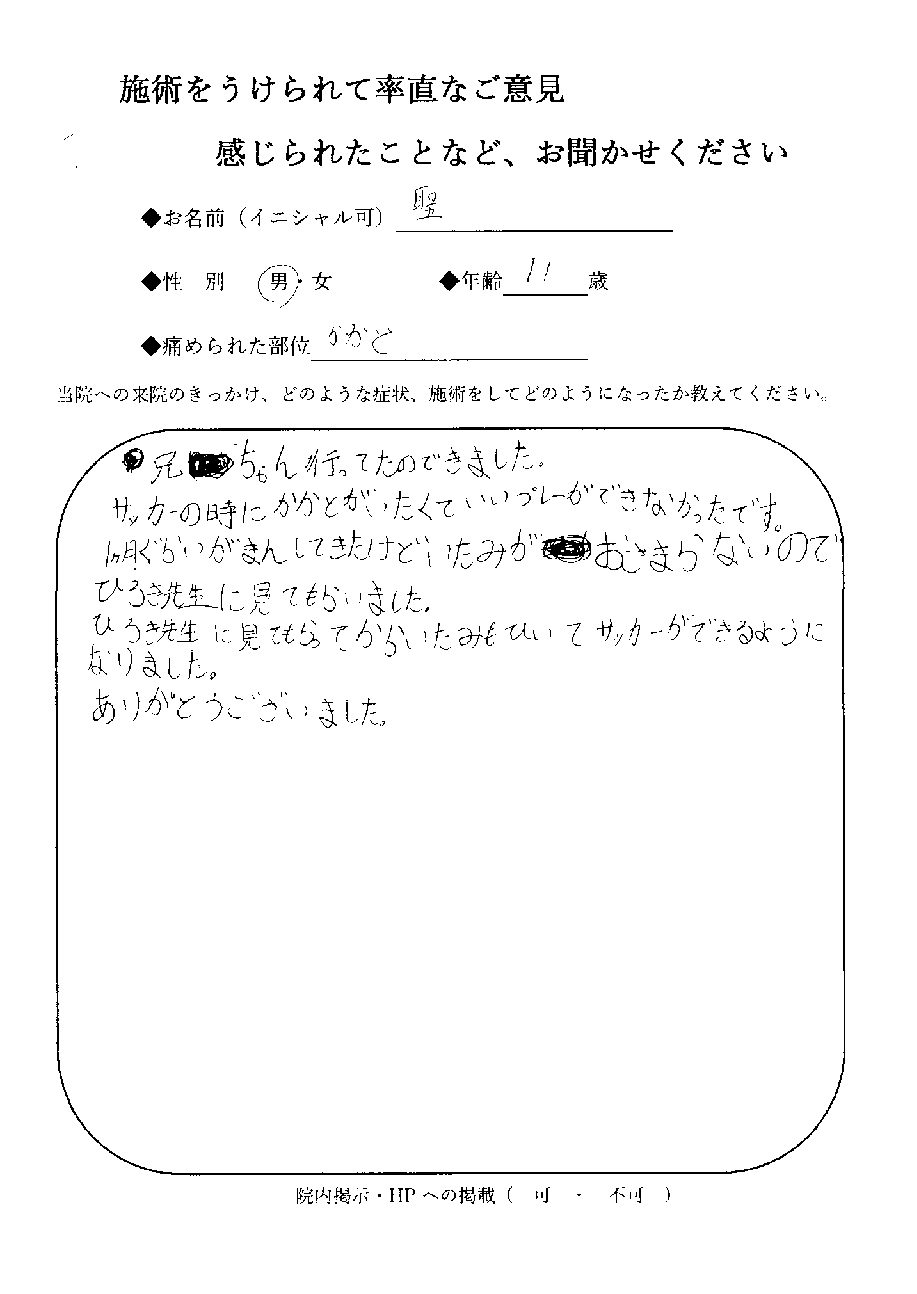 施術をうけられて率直なご意見
感じられたことなど、お聞かせください
◆お名前（イニシャル可） 聖
◆性 別 男・女 ◆年齢 11 歳
◆痛められた部位 かかと
当院への来院のきっかけ、どのような症状、施術をしてどのようになったか教えてください。
兄ちゃん行ってたのできました。
サッカーの時にかかとがいたくていいプレーができなかったです。
1ヶ月ぐらいがまんしてきたけどいたみがおさまらないので
ひろき先生に見てもらいました。
ひろき先生に見てもらってからいたみもひいてサッカーができるように
なりました。
ありがとうございました。
院内掲示・HPへの掲載（ 可 ・ 不可 ）